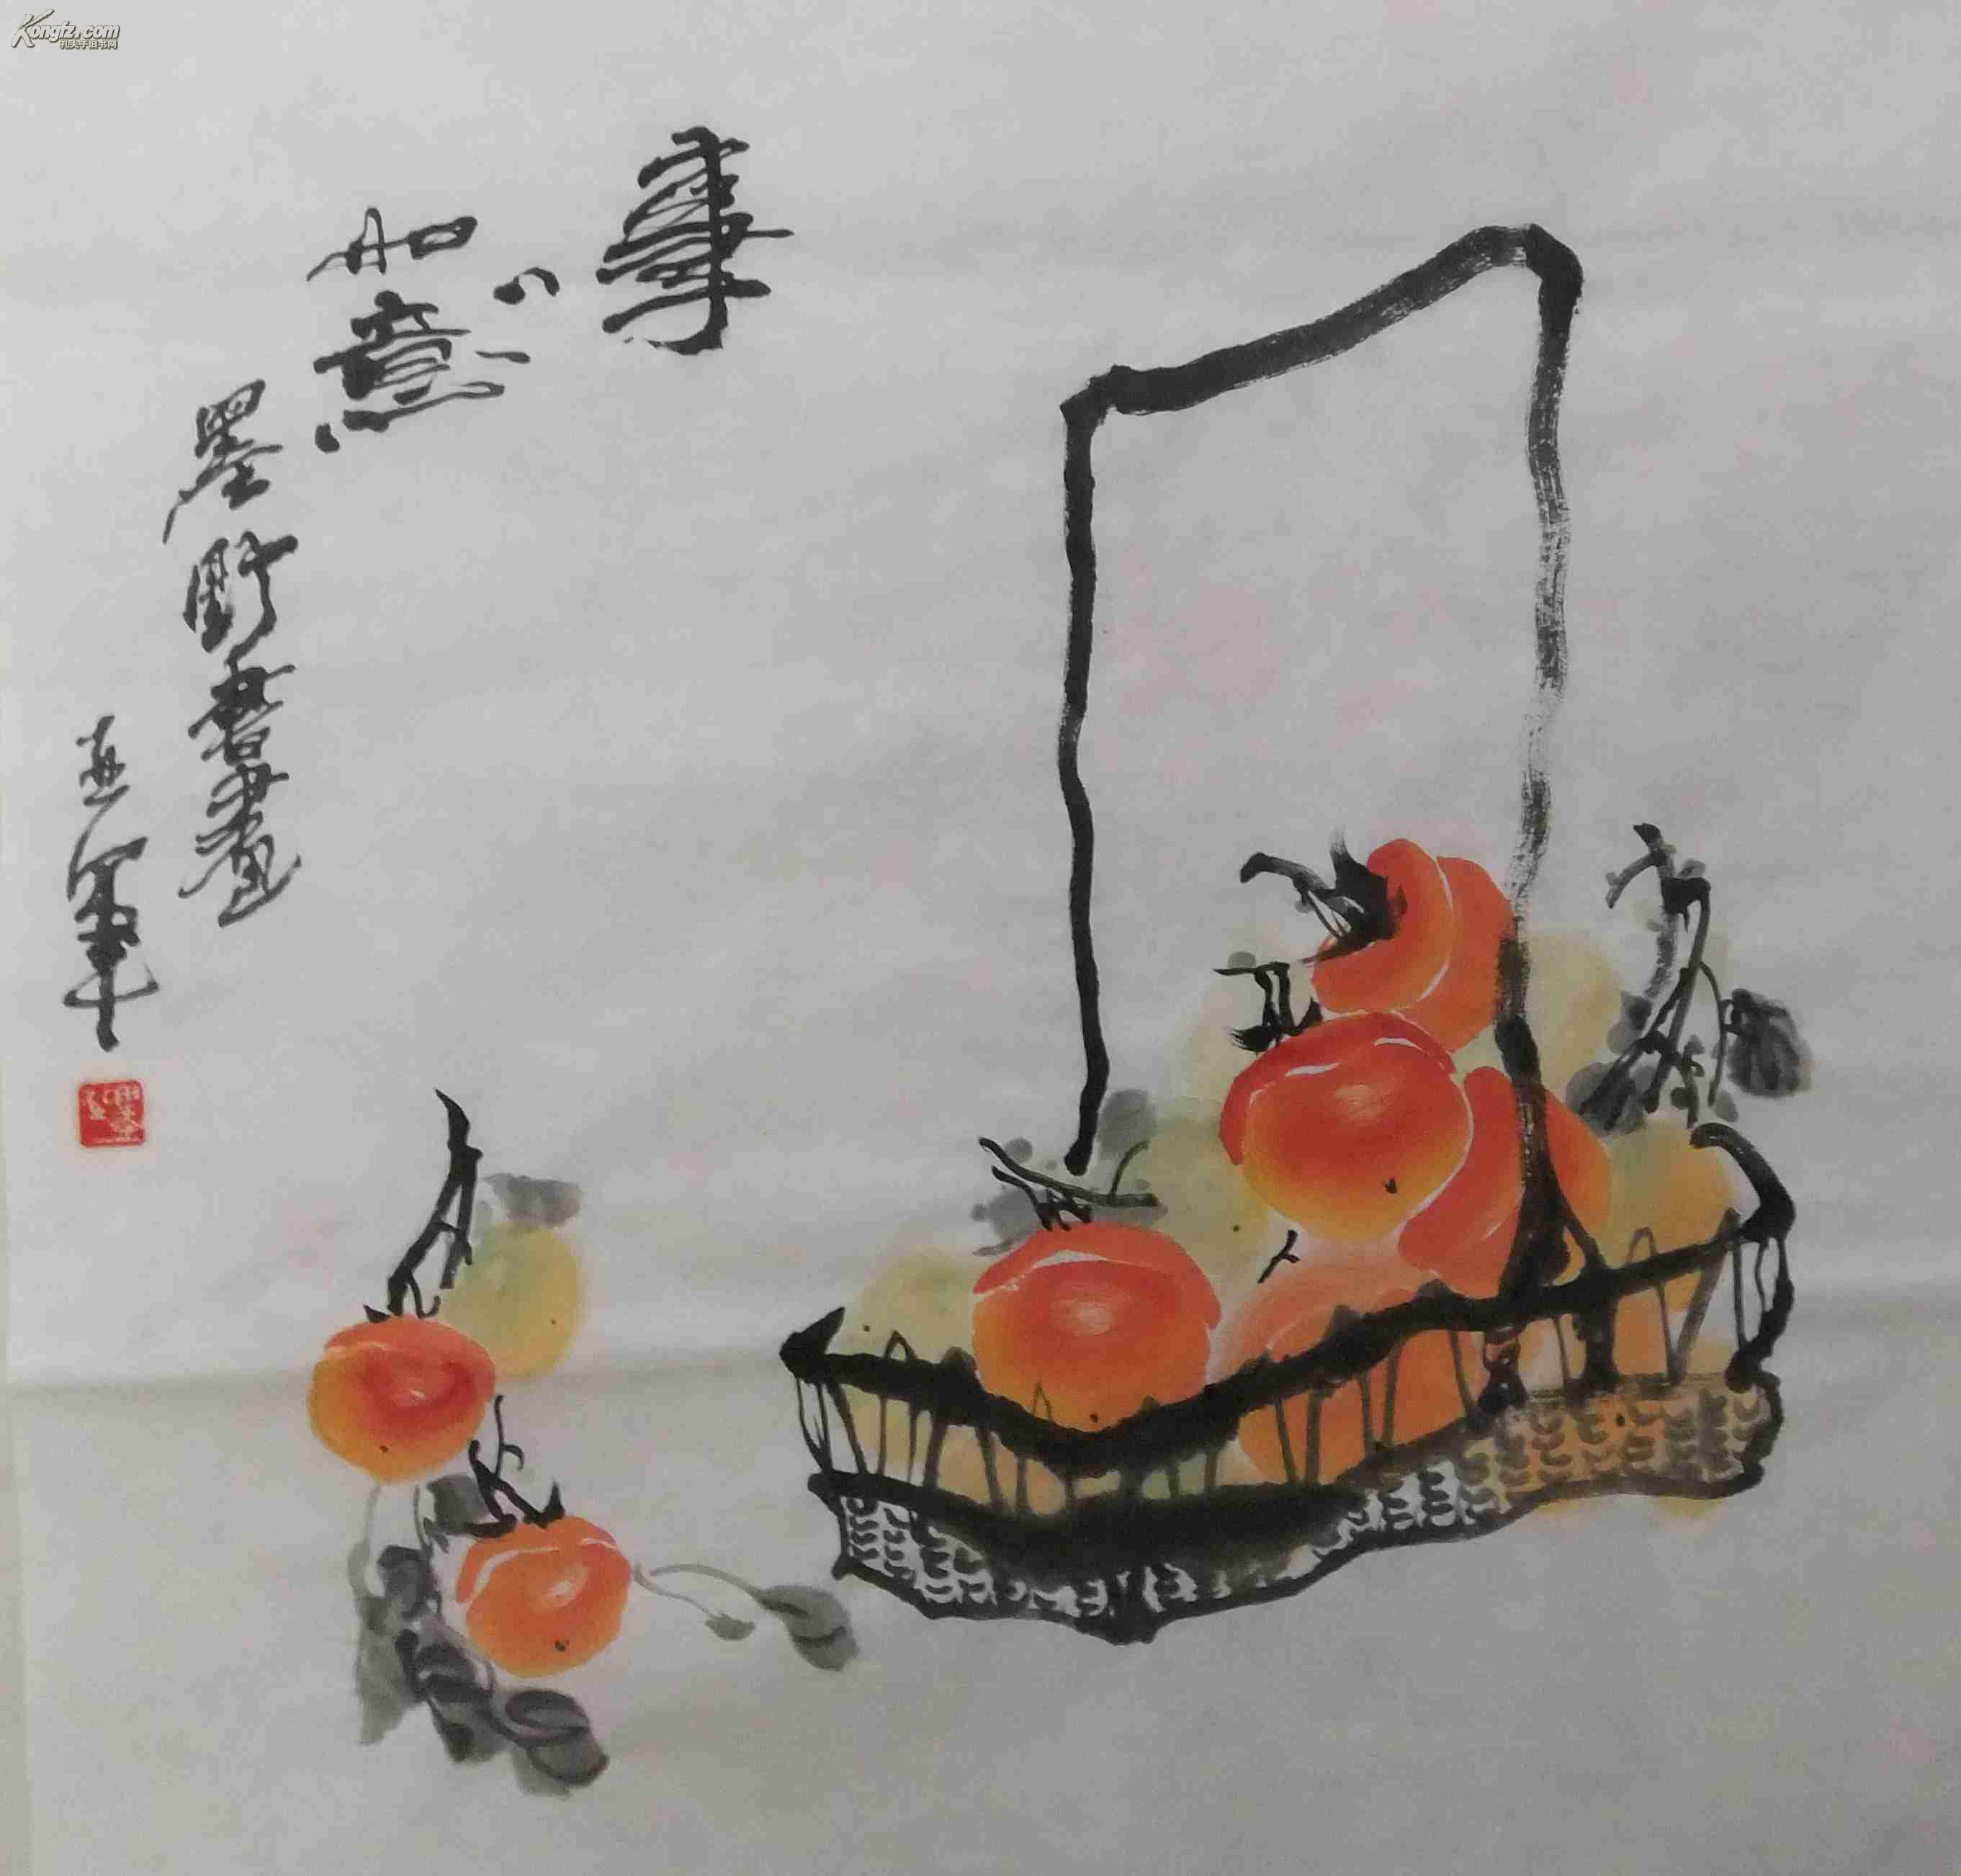 Kongfz.com
孔夫子旧书网
事
如意
墨野書畫